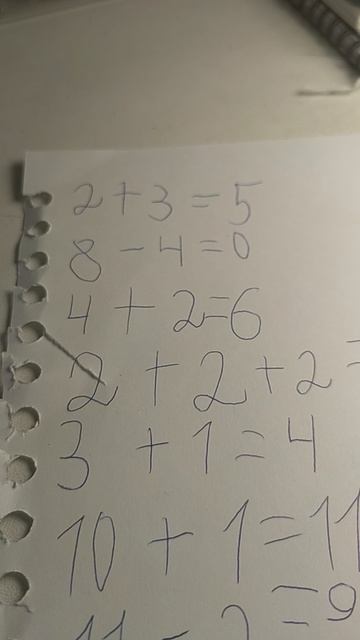 2 + 3 = 5
8 - 4 = 0
4 + 2 = 6
2 + 2 + 2 =
3 + 1 = 4
10 + 1 = 11
11 - 2 = 9